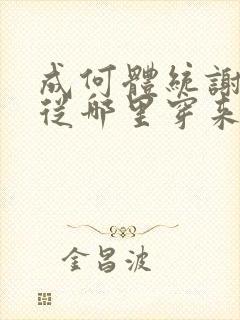 成何體統謝
從哪里穿來
金昌波